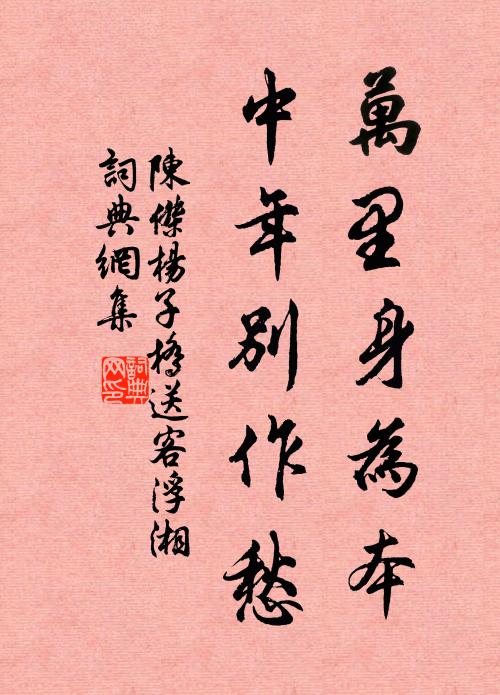 萬里身為本
中年別作愁
陳傑楊子橋送客浮湘
詞典網集
詞典網印